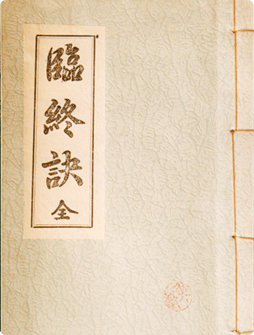 臨終訣 全